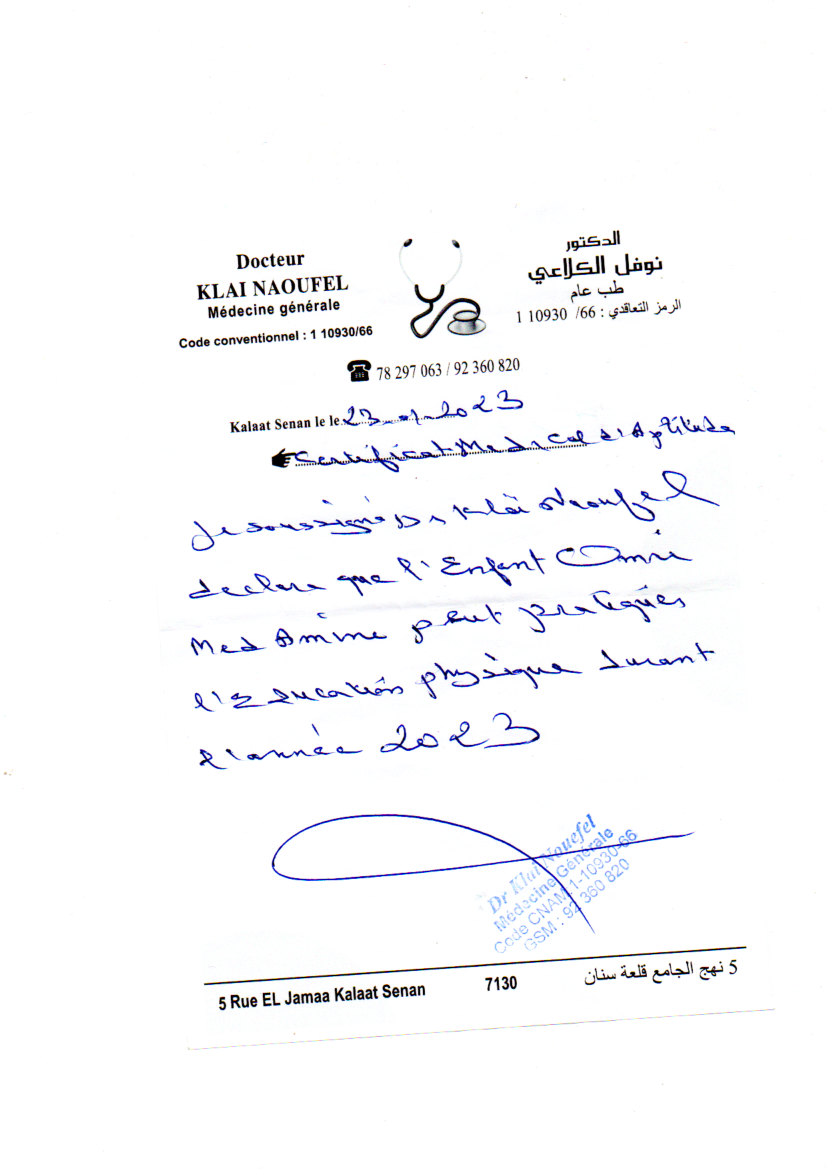 Docteur
KLAI NAOUFEL
Médecine générale
Code conventionnel : 1 10930/66
الدكتور
نوفل الكلاعي
طب عام
الرمز التعاقدي : 66/ 10930 1
78 297 063 / 92 360 820
Kalaat Senan le le 23-01-2023
Certificat Medical d'Aptitude
Je soussigné Dr Klai Naoufel
declare que l'Enfant Omri
Med Amine peut pratiquer
l'Education physique durant
l'année 2023
Dr Klai Nouefel
Médecine Générale
Code CNAM 1-10930-66
GSM : 92 360 820
5 Rue EL Jamaa Kalaat Senan 7130 5 نهج الجامع قلعة سنان